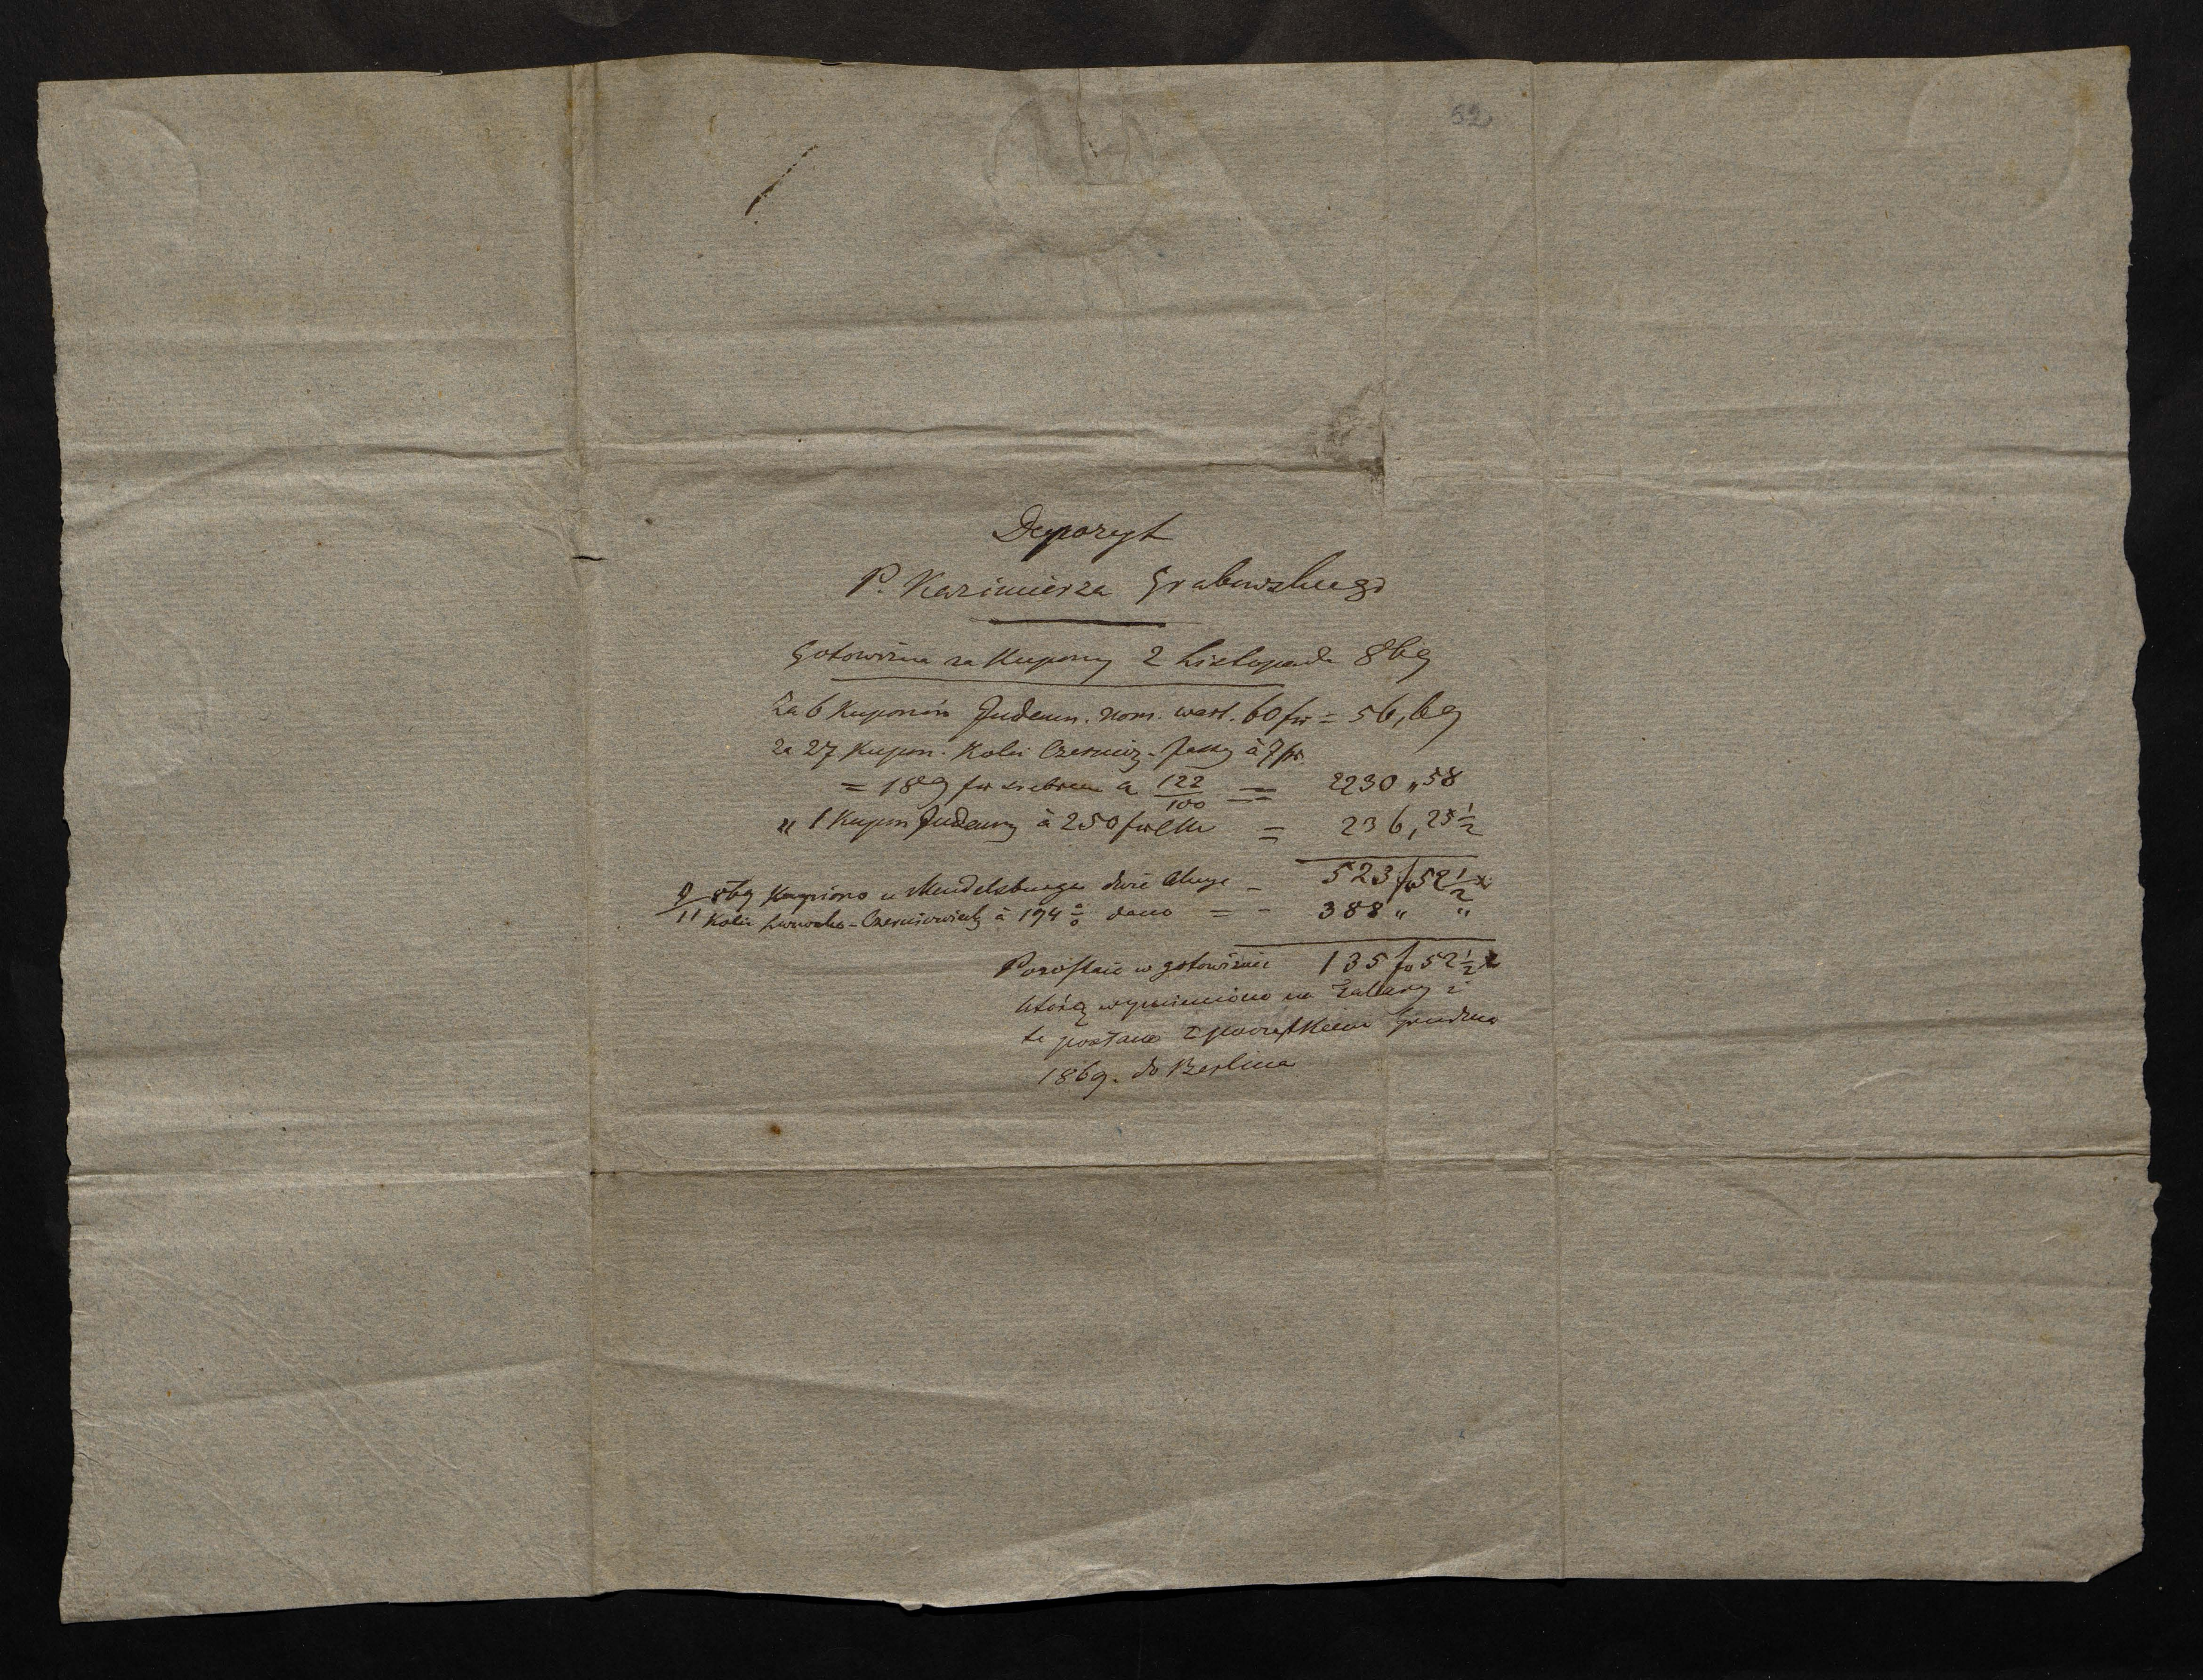 52
Depozyt
P. Kazimierza Grabowskiego
Gotowizna za Kupony 2 Listopada 869
Za 6 Kuponów Indemn. nom. wart. 60 fr = 56,69
za 27 Kupon. Kolei Czerniow-Jassy à 7 fr.
= 189 fr srebrem a 122/100 == 2230 „ 58
„ 1 Kupon Indemn à 250 fr = 236, 25 1/2
523 fr 52 1/2 x
9/11 869 Kupiono u Mendelsburga dwie Akcye –
Kolei Lwowsko-Czerniowieckiej à 194 % dano = - 388 „ „
Pozostaje w gotowiznie 135 fr 52 1/2 x
którą wymieniono na Talary i
te posłano z początkiem Grudnia
1869. do Berlina